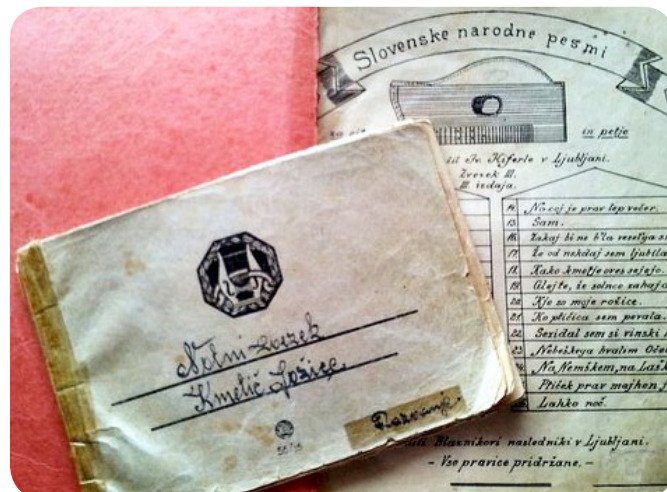 Slovenske narodne pesmi
in petje
Iv. Kiferle v Ljubljani.
Zvezek III.
III. izdaja.
14. Nocoj je prav lep večer.
15. Sam.
16. Zakaj bi ne b'la vesel'ga
17. Že od nekdaj sem ljubila
18. Kako kmetje oves sejejo.
19. Glejte, že solnce zahaja
20. Kje so moje rožice.
21. Ko ptičica sem pevala.
22. Sezidal sem si vinski
23. Nebeškega hvalim
24. Na Nemškem, na
Ptiček prav majhen,
Lahko noč.
Blaznikovi nasledniki v Ljubljani.
- Vse pravice pridržane. -
Notni zvezek
Kmetič Jožice